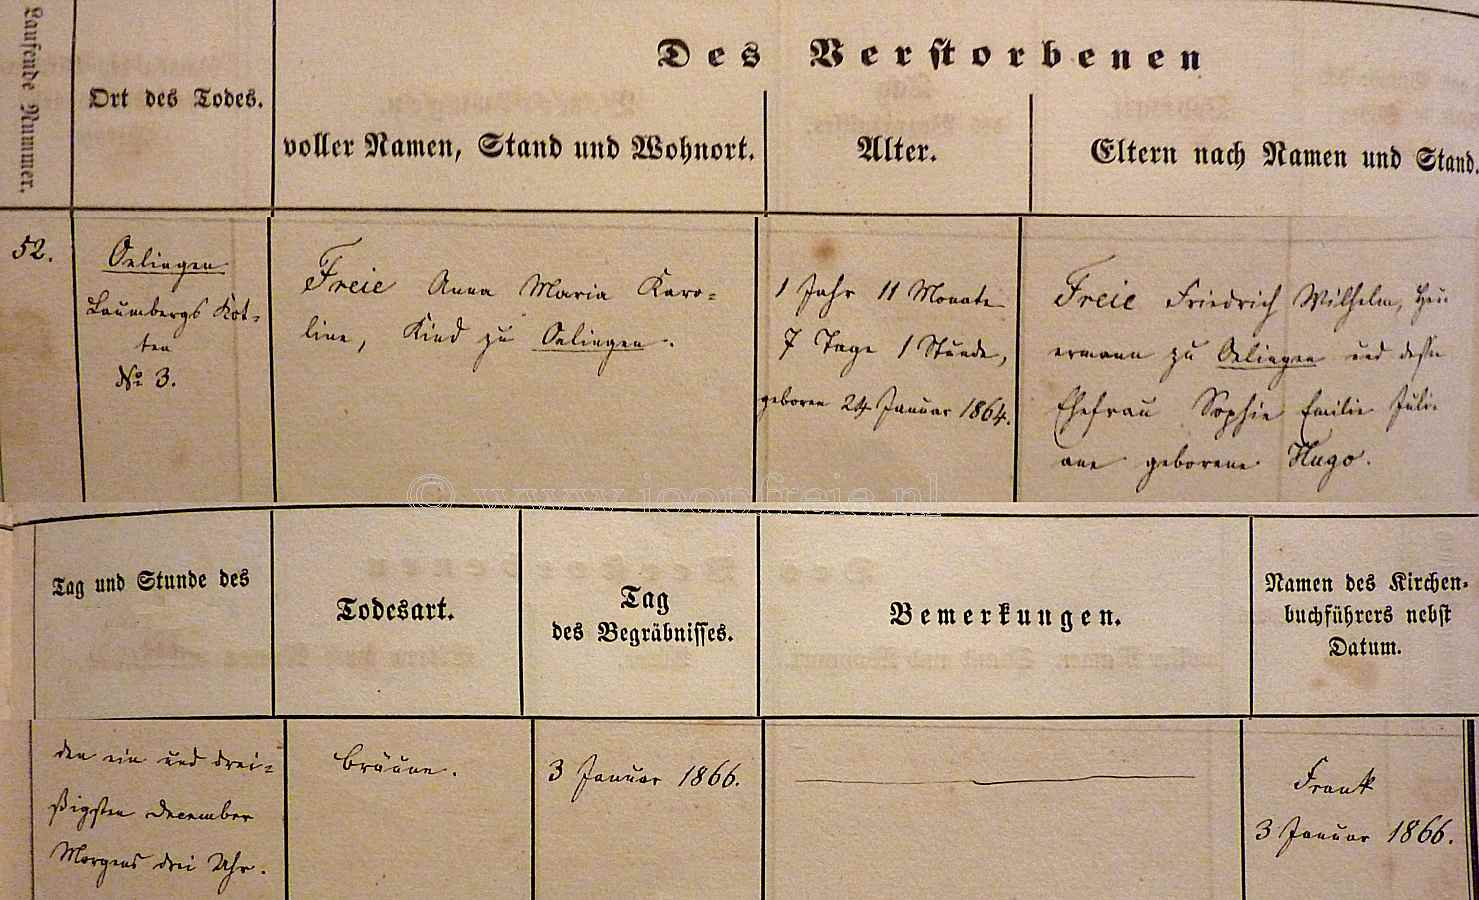 Laufende Nummer.
Ort des Todes.
Des Verstorbenen
voller Namen, Stand und Wohnort.
Alter.
Eltern nach Namen und Stand.
52.
Oelingen
Laumbergs Kot-
ten
No 3.
Freie Anna Maria Karo-
line, Kind zu Oelingen.
1 Jahr 11 Monate
7 Tage 1 Stunde,
geboren 24 Januar 1864.
Freie Friedrich Wilhelm, Heu
ermann zu Oelingen und dessen
Ehefrau Sophie Emilie Juli-
ane geborene Hugo.
© www.joopfreie.nl
Tag und Stunde des
Todesart.
Tag
des Begräbnisses.
Bemerkungen.
Namen des Kirchen-
buchführers nebst
Datum.
den ein und drei-
ßigsten December
Morgens drei Uhr.
Bräune.
3 Januar 1866.
Frank
3 Januar 1866.